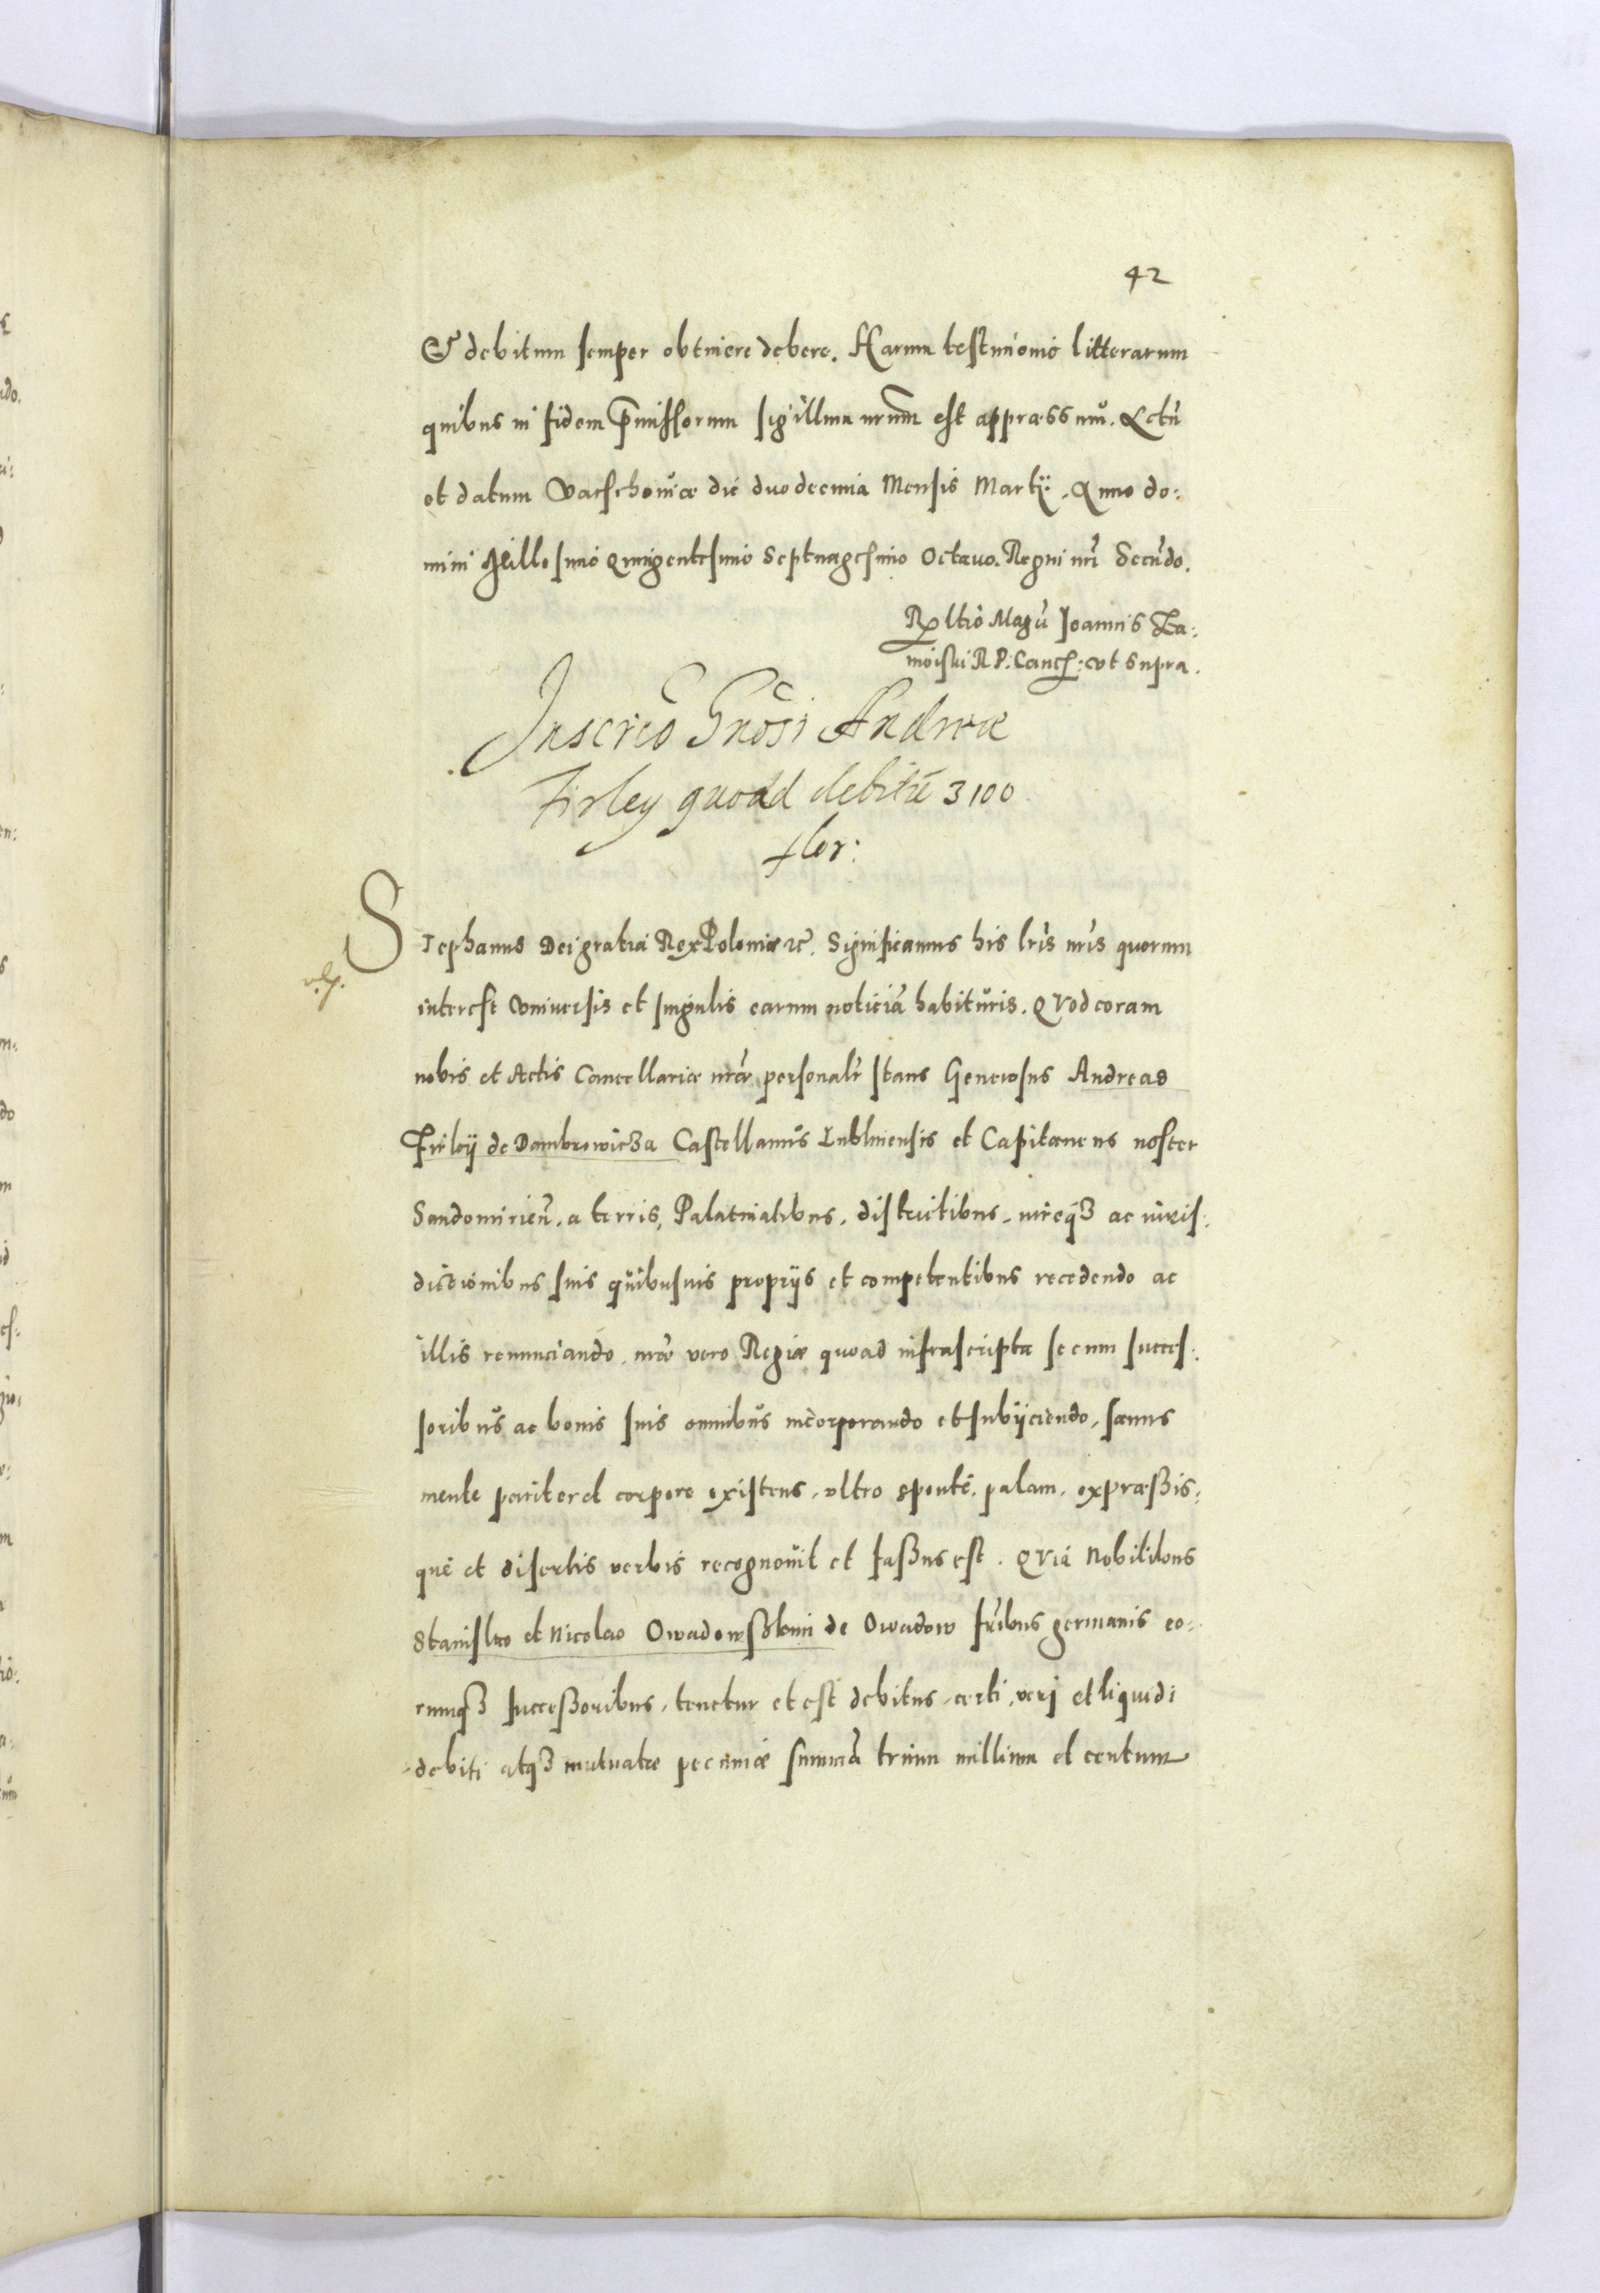 42
Et debitum semper obtinere debere. Harum testimonio litterarum
quibus in fidem p̃missorum sigillum nrũm est appraessum̃. Actũ
et datum Varschoviae die duodecima Mensis Martij. Anno do:
mini Millesimo Quingentesimo Septuagesimo Octavo. Regni nrĩ Secũdo.
Rltio Magci Joannis Za:
moiski R P: Canc: ut supra.
Inscrico Gnõsi Andreae
Firley quoad debitũ 3100
flor:
Stephanus Dei gratia Rex Poloniae etc. Significamus his lrĩs nrĩs quorum
interest Universis et singulis earum noticiã habituris. Quod coram
nobis et Actis Cancellariae nrãe personalr̃ stans Generosus Andreas
Firleij de Dambrowicza Castellanus Lublinensis et Capitaneus noster
Sandomirieñ. a terris, Palatinatibus, districtibus, iureq3 ac iuris:
dictionibus suis quibusvis proprijs et competentibus recedendo ac
illis renunciando, nrãe vero Regiae quoad infrascripta se cum succes:
soribus ac bonis suis omnibus incorporando et subijciendo, sanus
mente pariter et corpore existens, ultro sponte, palam, expraeßis:
que et disertis verbis recognovit et faßus est. Quia Nobilibus
Stanislao et Nicolao Owadowskim de Owadow fr̃ibus germanis eo:
rumq3 succeßoribus, tenetur et est debitus, certi, veri et liquidi
debiti atq3 mutuatae pecuniae summã trium millium et centum